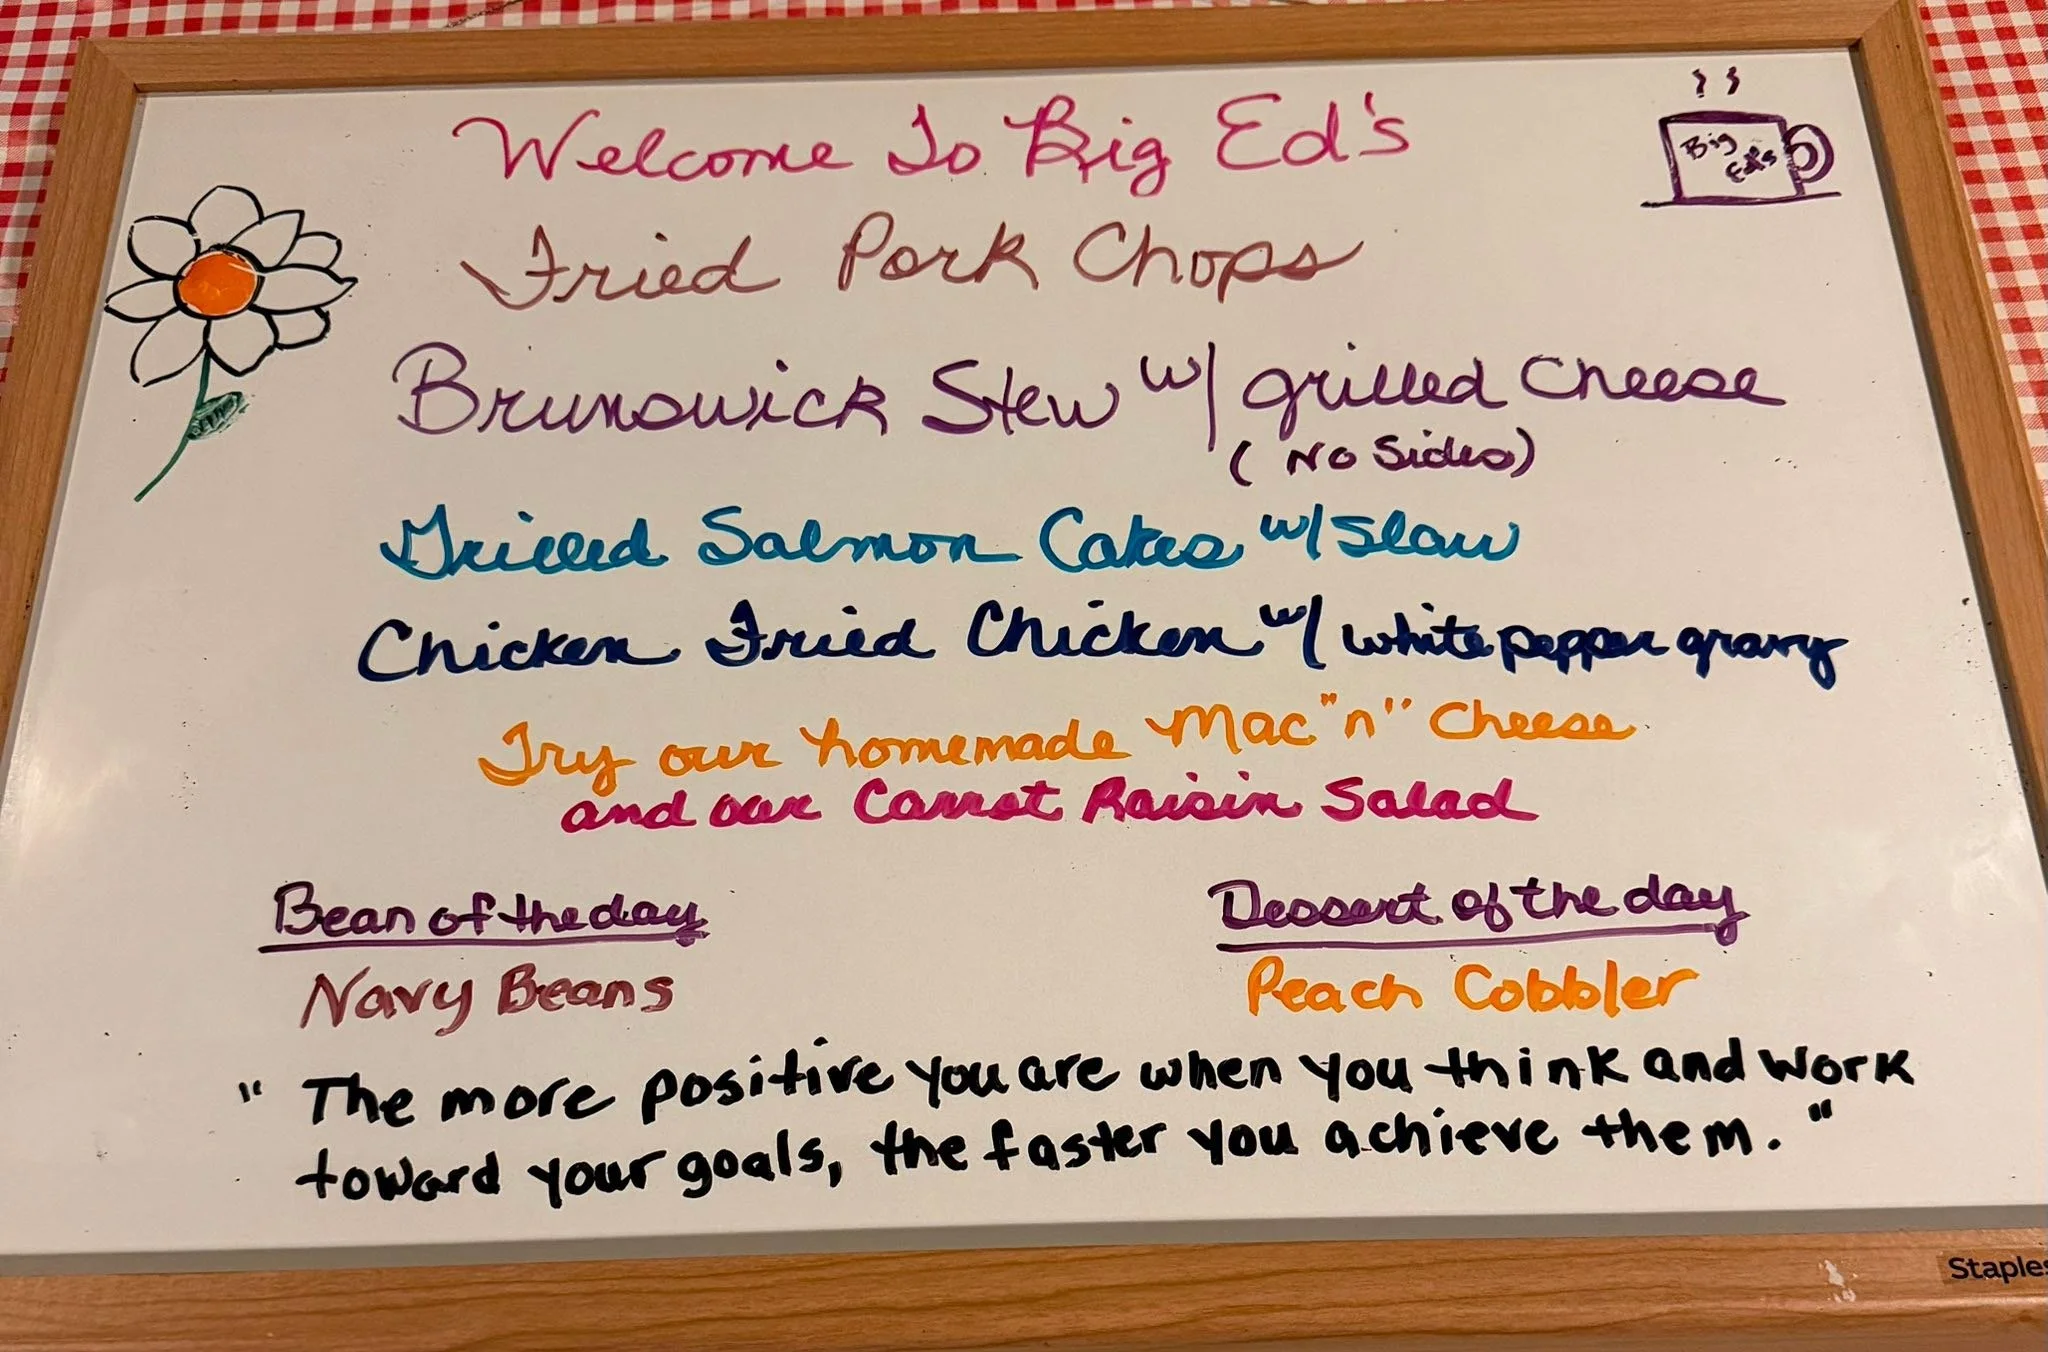 Welcome To Big Ed's
Big
Ed's
Fried Pork Chops
Brunswick Stew w/ grilled Cheese
(No Sides)
Grilled Salmon Cakes w/ Slaw
Chicken Fried Chicken w/ white pepper gravy
Try our homemade Mac "n" Cheese
and our Carrot Raisin Salad
Bean of the day
Navy Beans
Dessert of the day
Peach Cobbler
" The more positive you are when you think and work
toward your goals, the faster you achieve them. "
Staples